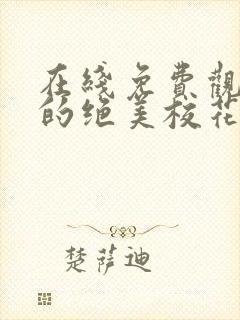 在綫免費觀
的绝美校花
楚萨迪